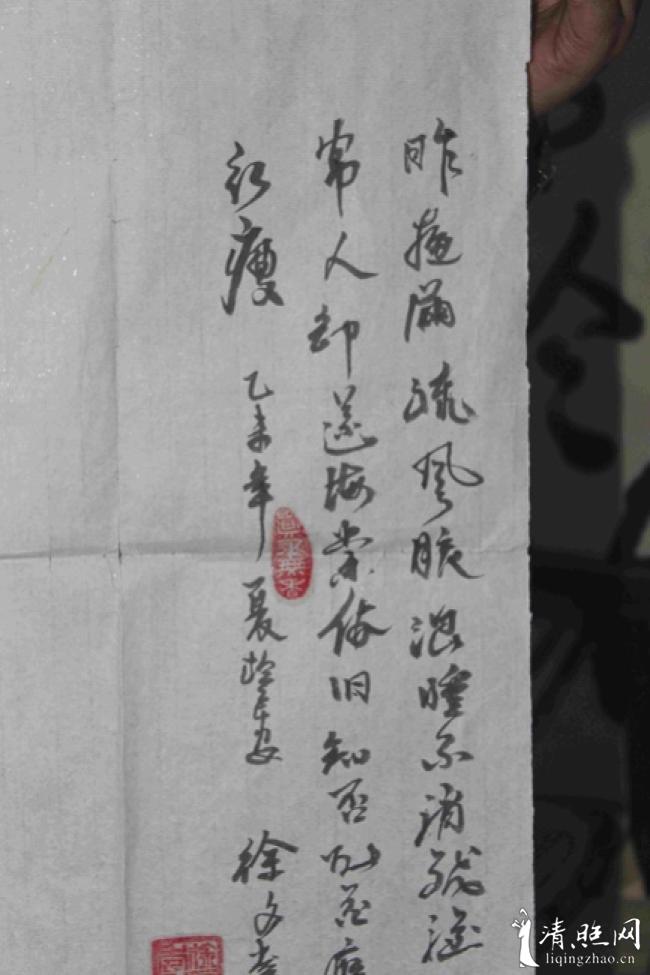 昨夜雨疏风骤浓睡不消残酒
帘人却道海棠依旧知否知否应
红瘦
乙未年夏於安 徐文
清照网
liqingzhao.cn